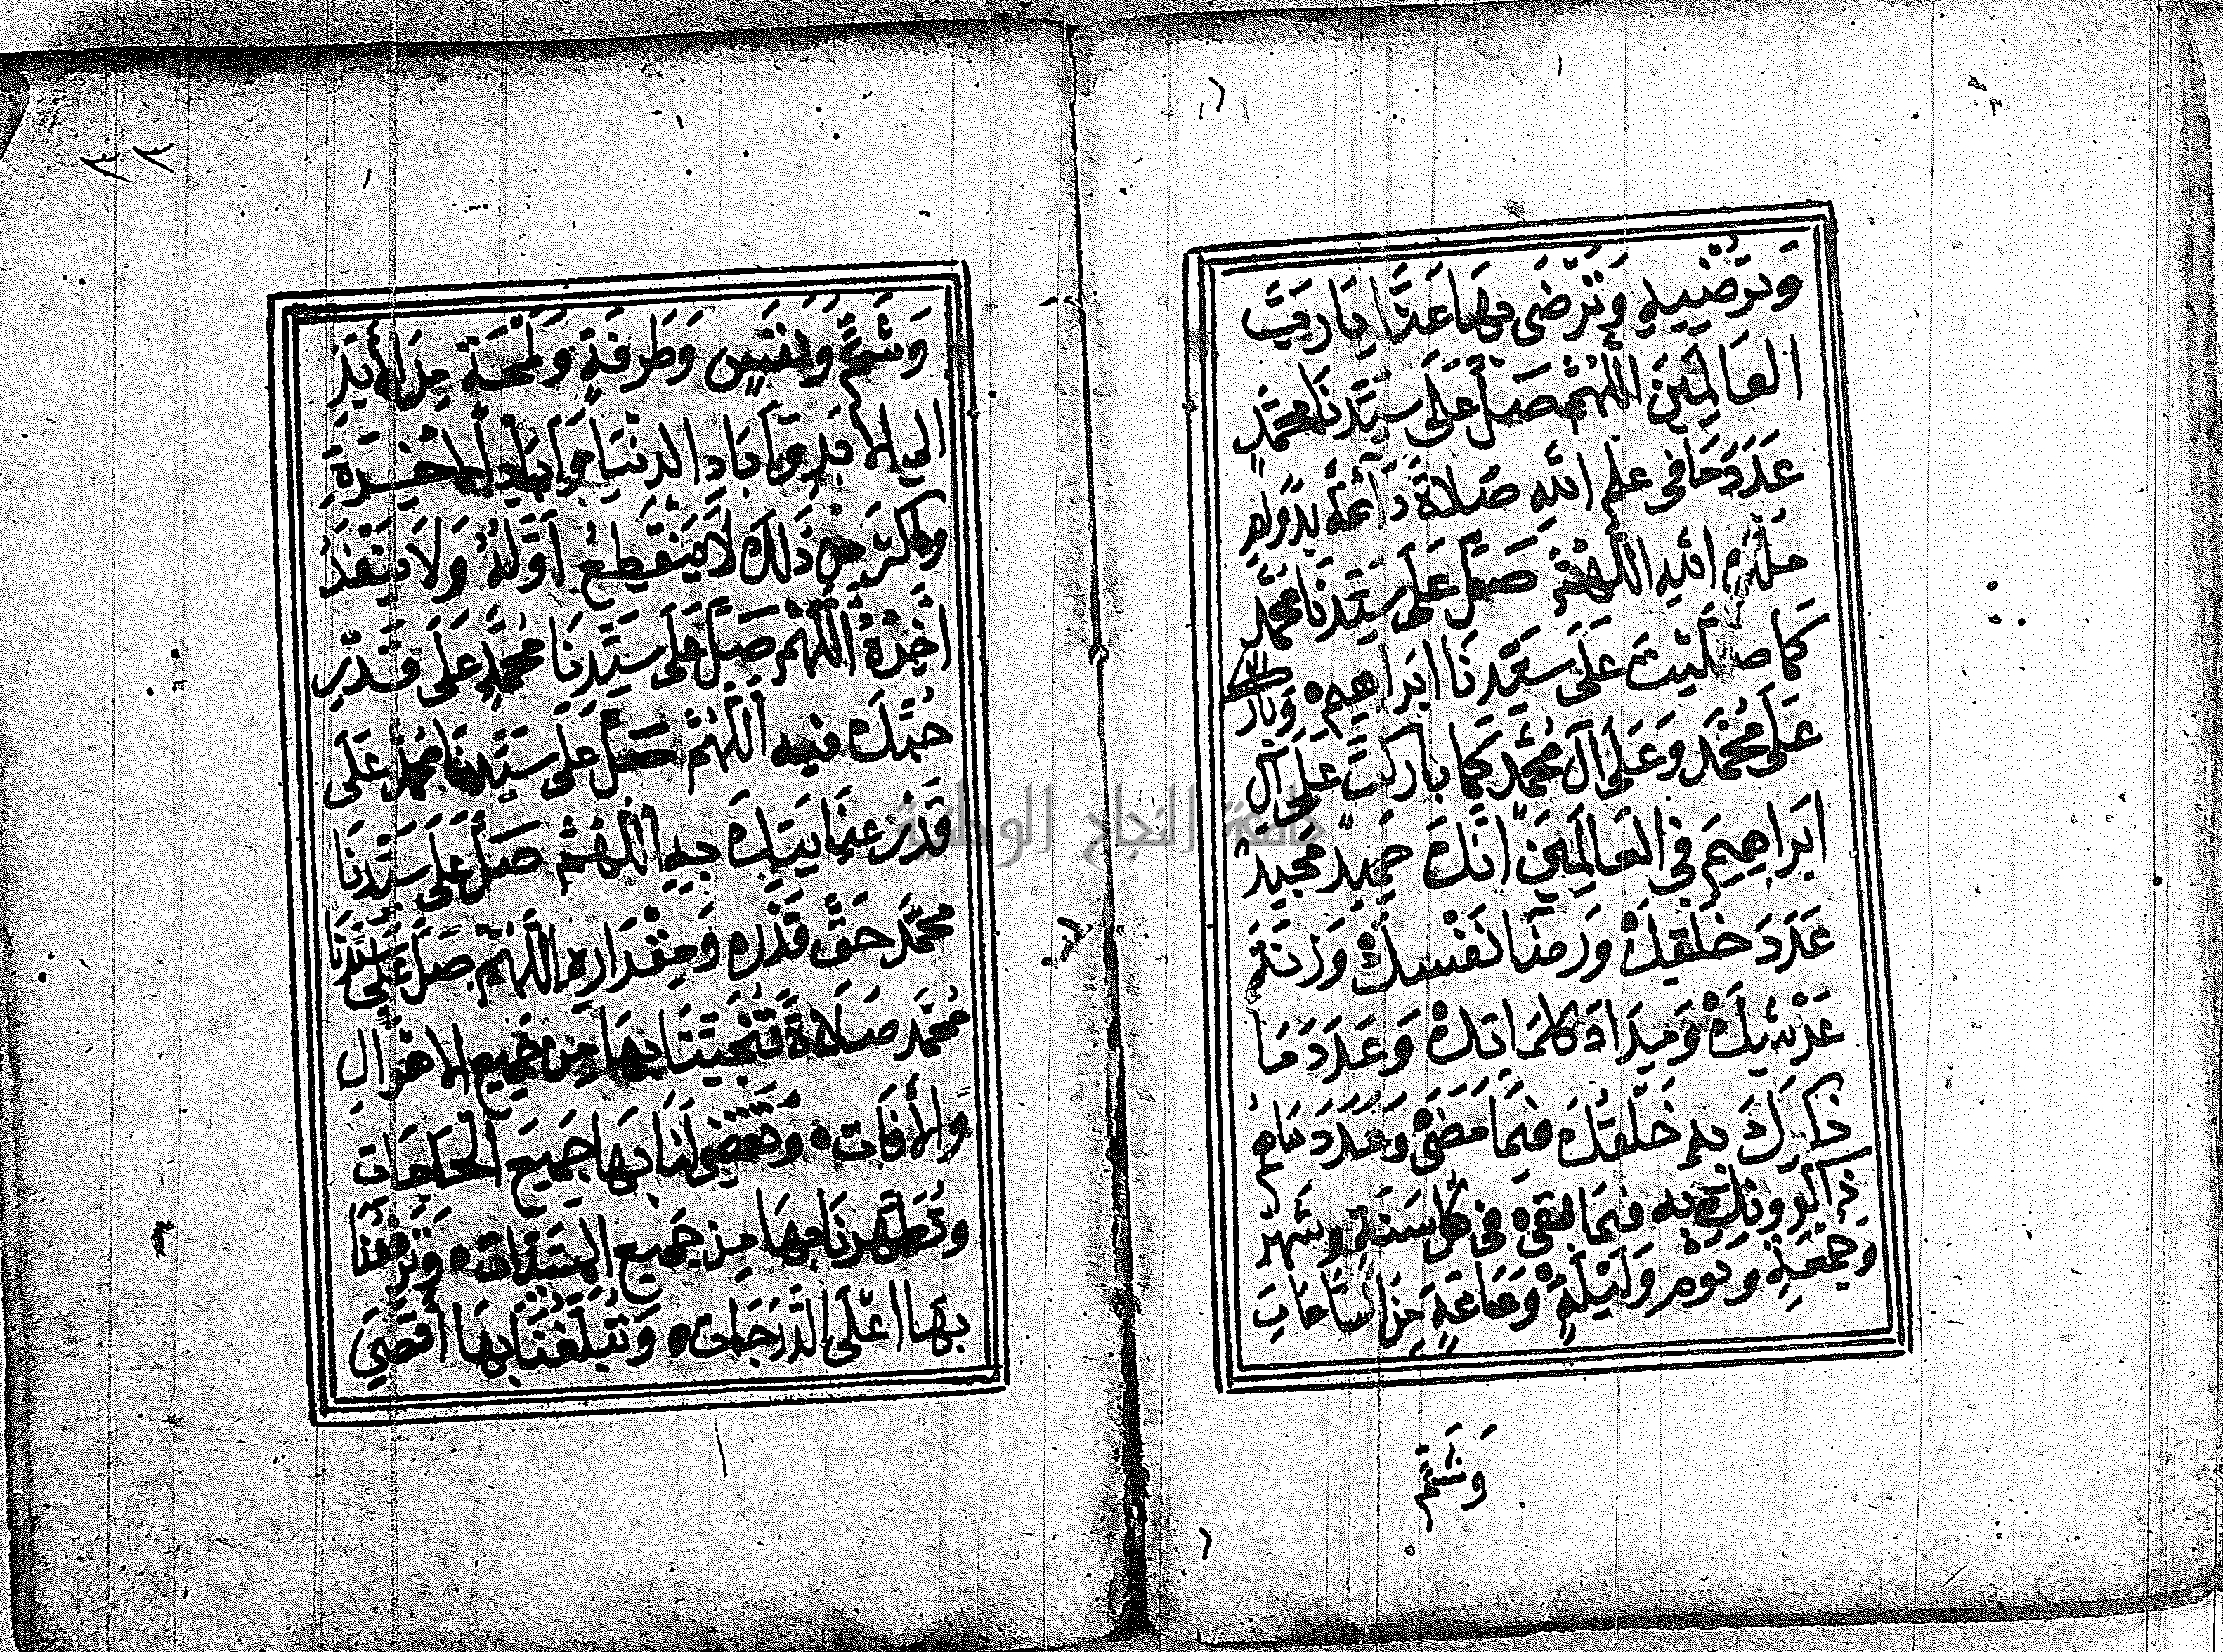 وَتُرْضِيهِ وَتَرْضَى بِهَا عَنَّا يَا رَبَّ
الْعَالَمِينَ اللَّهُمَّ صَلِّ عَلَى سَيِّدِنَا مُحَمَّدٍ
عَدَدَ مَا فِي عِلْمِ اللَّهِ صَلَاةً دَائِمَةً بِدَوَامِ
مُلْكِ اللَّهِ اللَّهُمَّ صَلِّ عَلَى سَيِّدِنَا مُحَمَّدٍ
كَمَا صَلَّيْتَ عَلَى سَيِّدِنَا ابْرَاهِيمَ وَبَارِكْ
عَلَى مُحَمَّدٍ وَعَلَى آلِ مُحَمَّدٍ كَمَا بَارَكْتَ عَلَى آلِ
ابْرَاهِيمَ فِي الْعَالَمِينَ انَّكَ حَمِيدٌ مَجِيدٌ
عَدَدَ خَلْقِكَ وَرِضَا نَفْسِكَ وَزِنَةَ
عَرْشِكَ وَمِدَادَ كَلِمَاتِكَ وَعَدَدَ مَا
ذَكَرَكَ بِهِ خَلْقُكَ فِيمَا مَضَى وَعَدَدَ مَا هُمْ
ذَاكِرُونَكَ بِهِ فِيمَا بَقِيَ فِي كُلِّ سَنَةٍ وَشَهْرٍ
وَجُمْعَةٍ وَيَوْمٍ وَلَيْلَةٍ وَسَاعَةٍ مِنَ السَّاعَاتِ
وَشَمٍّ
٣٣
وَشَمٍّ وَنَفَسٍ وَطَرْفَةٍ وَلَمْحَةٍ مِنَ الْأَبَدِ
الى الْأَبَدِ وَآبَادِ الدُّنْيَا وَآبَادِ الْآخِرَةِ
وَاكْثَرَ مِنْ ذَلِكَ لَا يَنْقَطِعُ أَوَّلُهُ وَلَا يَنْفَدُ
آخِرُهُ اللَّهُمَّ صَلِّ عَلَى سَيِّدِنَا مُحَمَّدٍ عَلَى قَدْرِ
حُبِّكَ فِيهِ اللَّهُمَّ صَلِّ عَلَى سَيِّدِنَا مُحَمَّدٍ عَلَى
قَدْرِ عِنَايَتِكَ بِهِ اللَّهُمَّ صَلِّ عَلَى سَيِّدِنَا
مُحَمَّدٍ حَقَّ قَدْرِهِ وَمِقْدَارِهِ اللَّهُمَّ صَلِّ عَلَى سَيِّدِنَا
مُحَمَّدٍ صَلَاةً تُنْجِينَا بِهَا مِنْ جَمِيعِ الْأَهْوَالِ
وَالْآفَاتِ وَتَقْضِي لَنَا بِهَا جَمِيعَ الْحَاجَاتِ
وَتُطَهِّرُنَا بِهَا مِنْ جَمِيعِ السَّيِّئَاتِ وَتَرْفَعُنَا
بِهَا اعْلَى الدَّرَجَاتِ وَتُبَلِّغُنَا بِهَا أَقْصَى
جامعة النجاح الوطنية